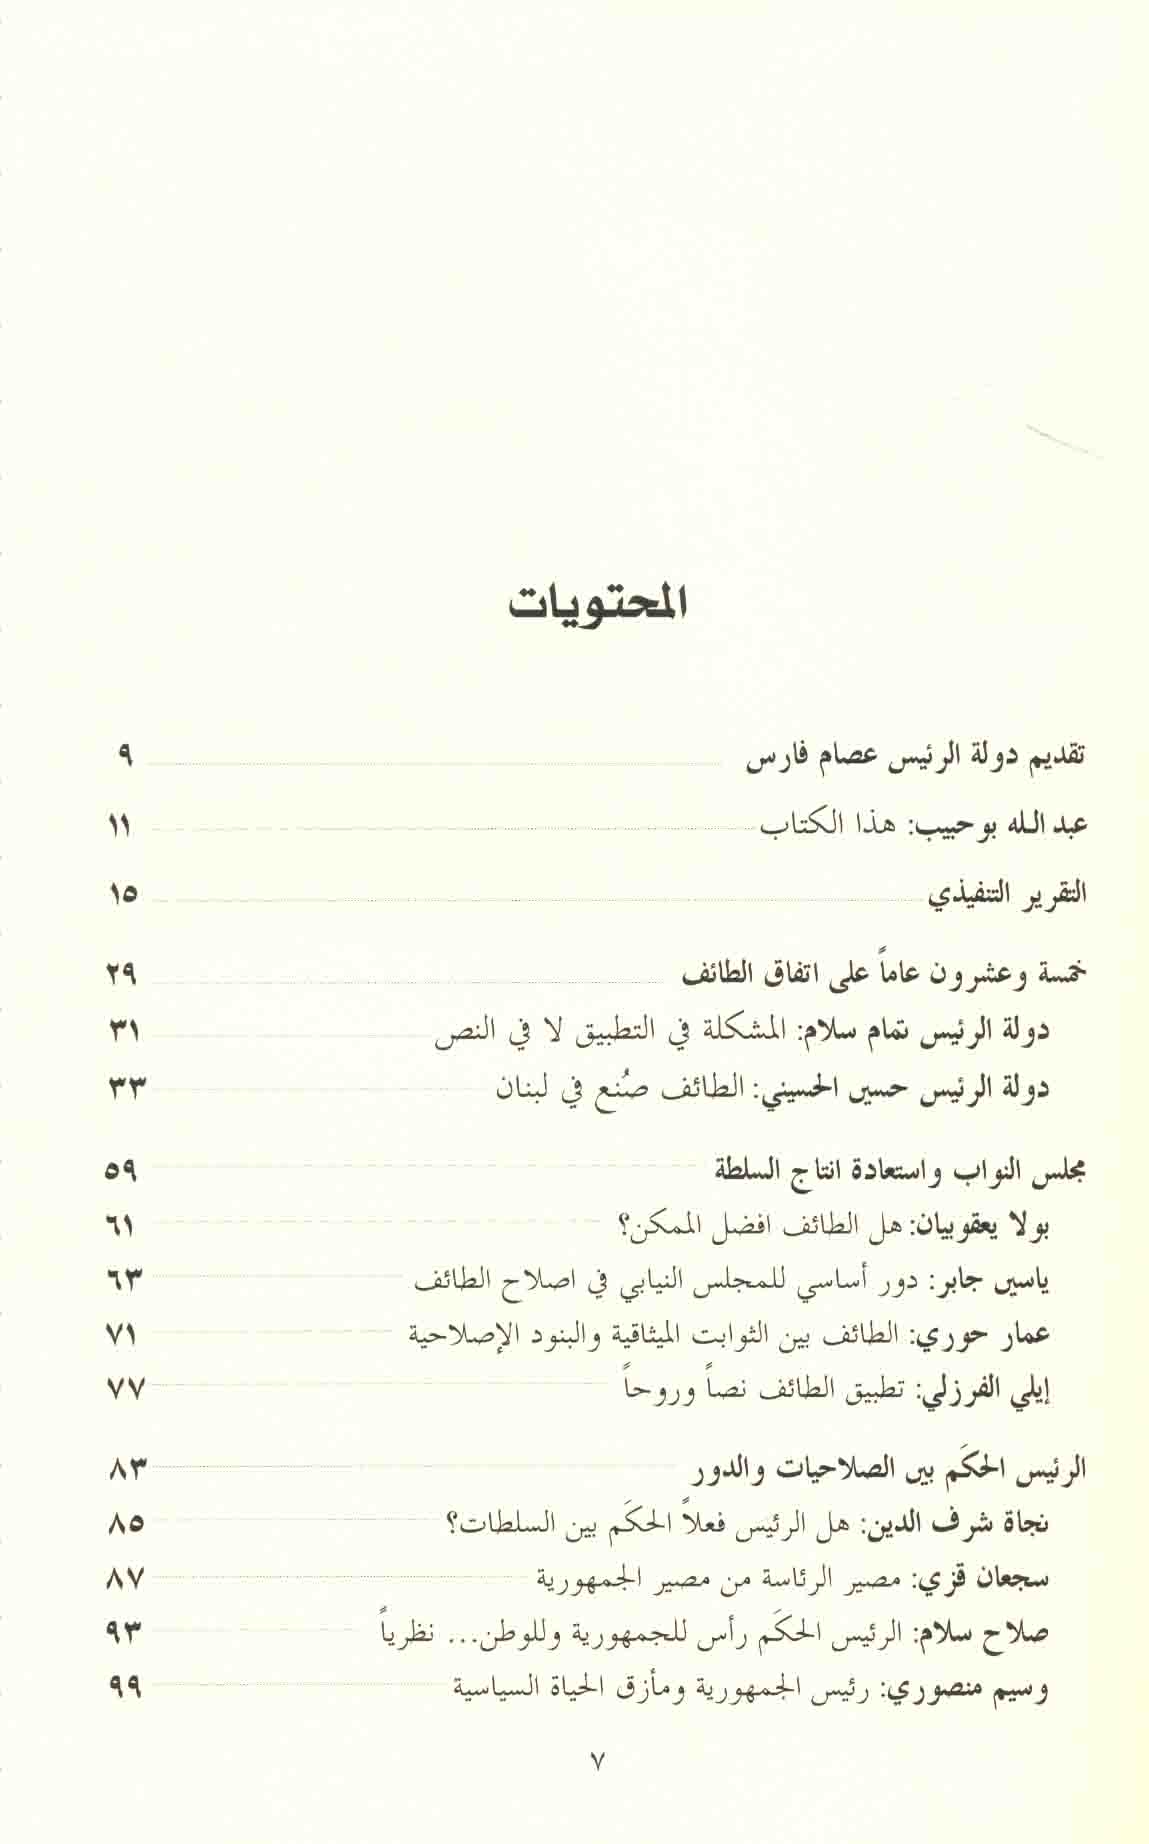 المحتويات
تقديم دولة الرئيس عصام فارس ٩
عبد الله بو حبيب: هذا الكتاب ١١
التقرير التنفيذي ١٥
خمسة وعشرون عاماً على اتفاق الطائف ٢٩
دولة الرئيس تمام سلام: المشكلة في التطبيق لا في النص ٣١
دولة الرئيس حسين الحسيني: الطائف صُنع في لبنان ٣٣
مجلس النواب واستعادة انتاج السلطة ٥٩
بولا يعقوبيان: هل الطائف افضل الممكن؟ ٦١
ياسين جابر: دور أساسي للمجلس النيابي في اصلاح الطائف ٦٣
عمار حوري: الطائف بين الثوابت الميثاقية والبنود الإصلاحية ٧١
إيلي الفرزلي: تطبيق الطائف نصاً وروحاً ٧٧
الرئيس الحكَم بين الصلاحيات والدور ٨٣
نجاة شرف الدين: هل الرئيس فعلاً الحكَم بين السلطات؟ ٨٥
سجعان قزي: مصير الرئاسة من مصير الجمهورية ٨٧
صلاح سلام: الرئيس الحكَم رأس للجمهورية وللوطن... نظرياً ٩٣
وسيم منصوري: رئيس الجمهورية ومأزق الحياة السياسية ٩٩
٧